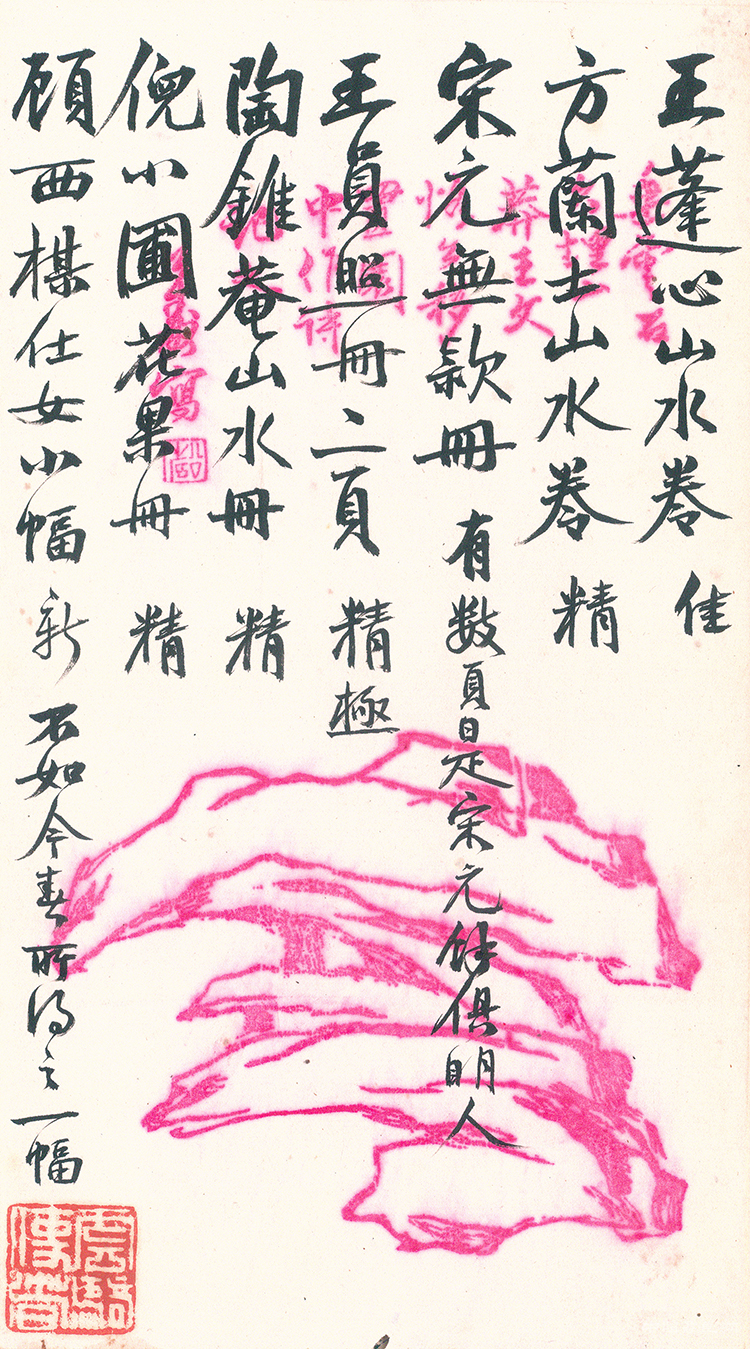 王蓬心山水卷 佳
方蘭士山水卷 精
宋元無款冊 有數頁是宋元餘俱明人
王員照冊二頁 精極
陶錐菴山水冊 精
倪小圃花果冊 精
顧西楳仕女小幅 新 不如今春所得之一幅